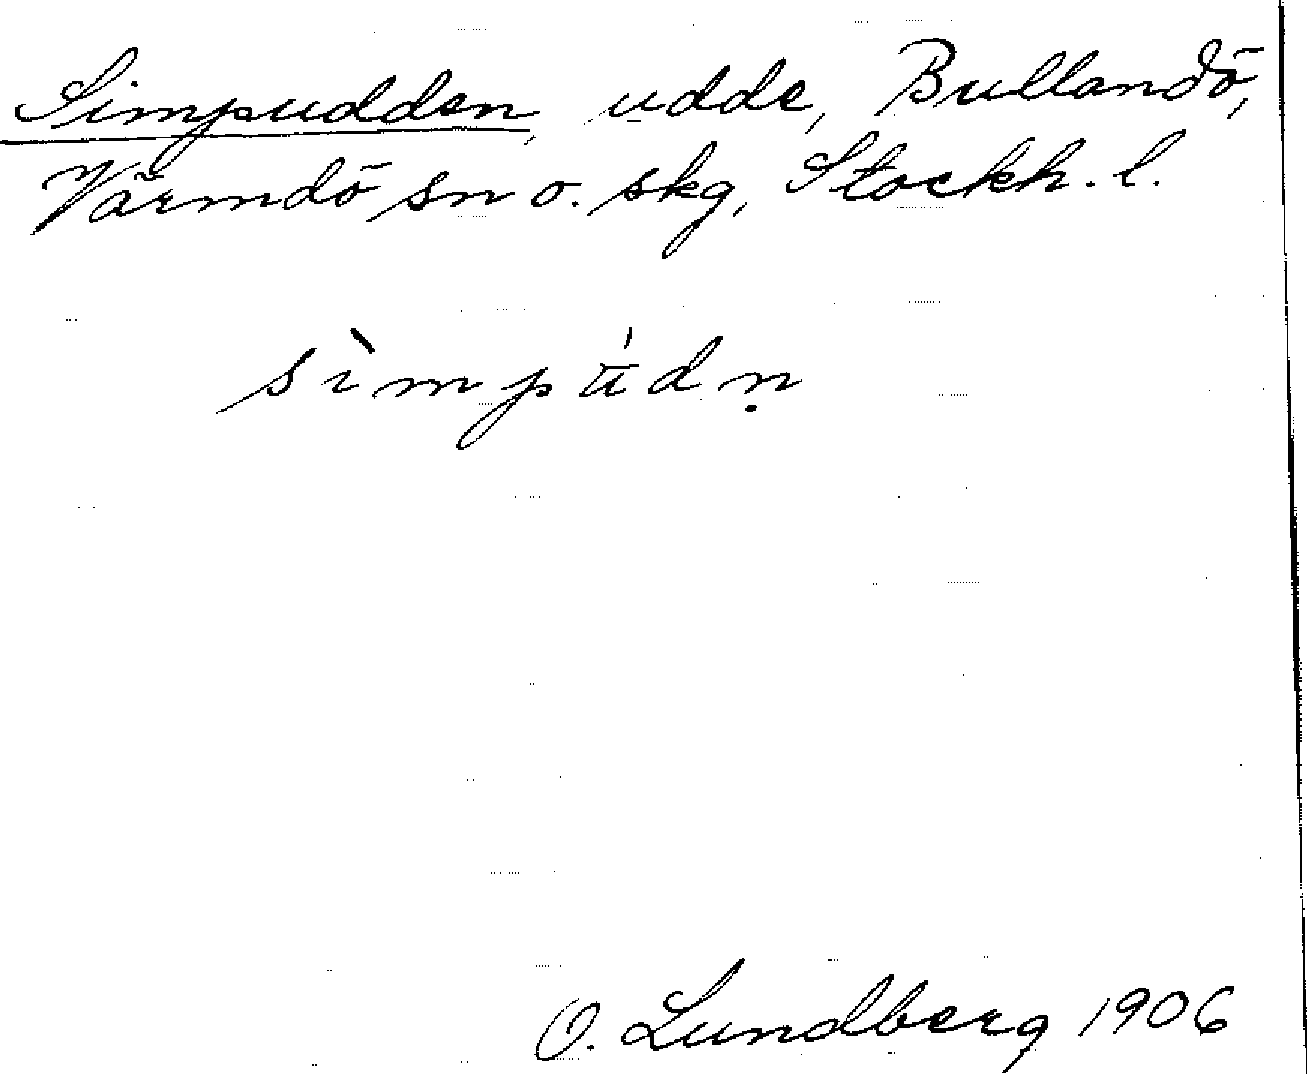 Simpudden, udde, Bullandö,
Värmdö sn o. skg, Stockh. l.
sìmpū́dṇ
O. Lundberg 1906